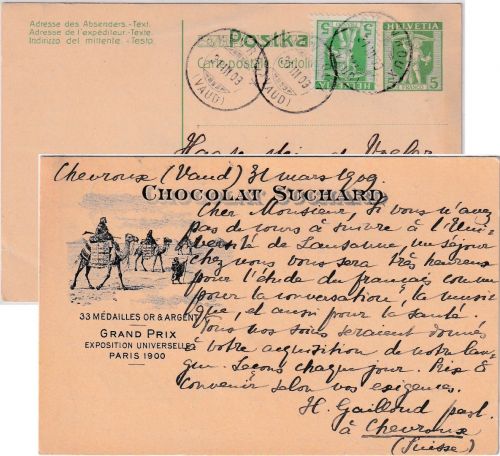 Adresse des Absenders.-Text.
Adresse de l'expéditeur.-Texte.
Indirizzo del mittente.-Testo.
Postka
Carte postale. Cartolin
HELVETIA
5
FRANCO
HELVETIA
5
(VAUD)
(VAUD)
Chevroux (Vaud) 31 mars 1909.
CHOCOLAT SUCHARD
Cher Monsieur, Si vous n'avez
pas de cours à suivre à l'Uni-
versité de Lausanne, un séjour
chez nous vous sera très heureux
pour l'étude du français comme
pour la conversation, la musi-
que, et aussi pour la santé.
Tous nos soins seraient donnés
à votre acquisition de notre lan-
gue. Leçons chaque jour. Prix à
convenir selon vos exigences.
H. Gailloud past.
à Chevroux
(Suisse)
33 MÉDAILLES OR & ARGENT
GRAND PRIX
EXPOSITION UNIVERSELLE
PARIS 1900